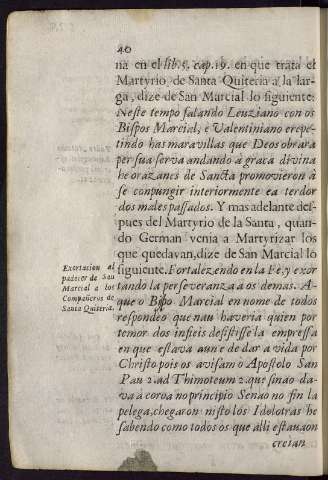 40
na en el lib. 5. cap. 19. en que trata el
Martyrio de Santa Quiteria a la lar-
ga, dize de San Marcial lo siguiente:
Neste tempo falando Leuziano con os
Bispos Marcial, e Valentiniano erepe-
tindo has maravillas que Deos obrara
per sua serva andando a graca divina
he orazanes de Sancta promovieron à
se conpungir interiormente ea terdor
dos males passados. Y mas adelante des-
pues del Martyrio de la Santa, quan-
do German venia a Martyrizar los
que quedavan, dize de San Marcial lo
siguiente. Fortalezendo en la Fé, y exor
tando la perseveranza a os demas. A-
que o Bispo Marcial en nome de todos
respondeo que nau haveria quien por
temor dos infieis desistisse la empressa
en que estava aun e de dar a vida por
Christo pois os avisam o Apostolo San
Pau 2. ad Thimoteum 2. que sinào da-
va à coroa no principio Senao no fin la
pelega, chegaron nisto los Idolotras he
sabendo como todos os que alli estauaon
creian
Exortacion al
padecer de San
Marcial a los
Compañeros de
Santa Quiteria.